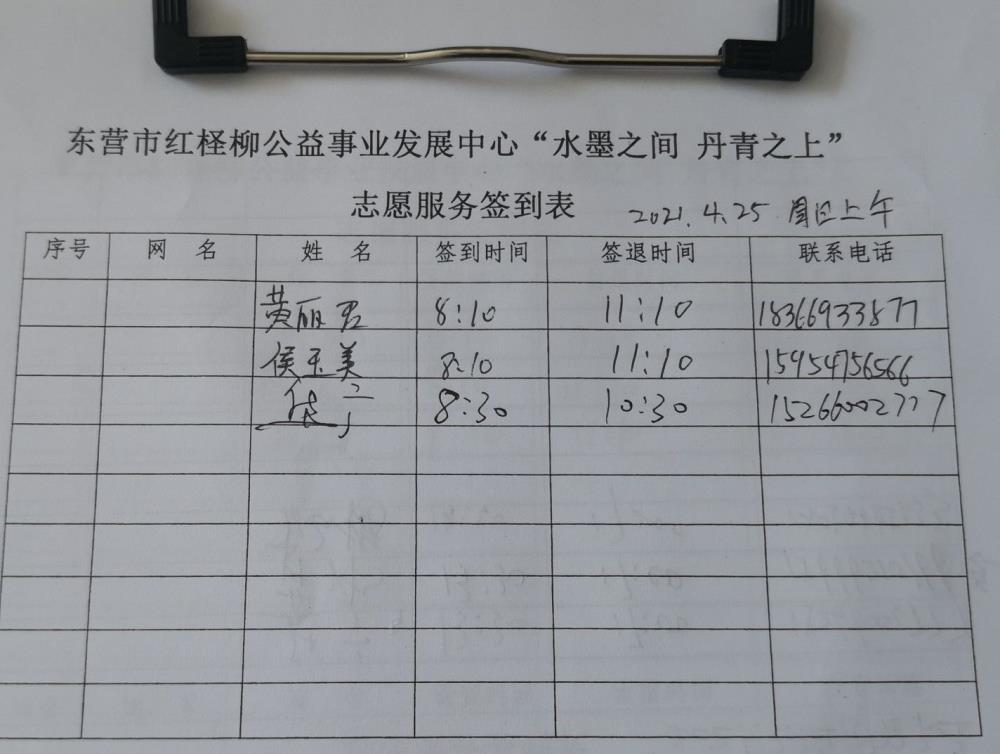 东营市红柽柳公益事业发展中心“水墨之间 丹青之上”
志愿服务签到表 2021.4.25 周日上午
序号 网 名 姓 名 签到时间 签退时间 联系电话
黄丽君 8:10 11:10 18366933877
侯玉美 8:10 11:10 15954756566
8:30 10:30 15266002777